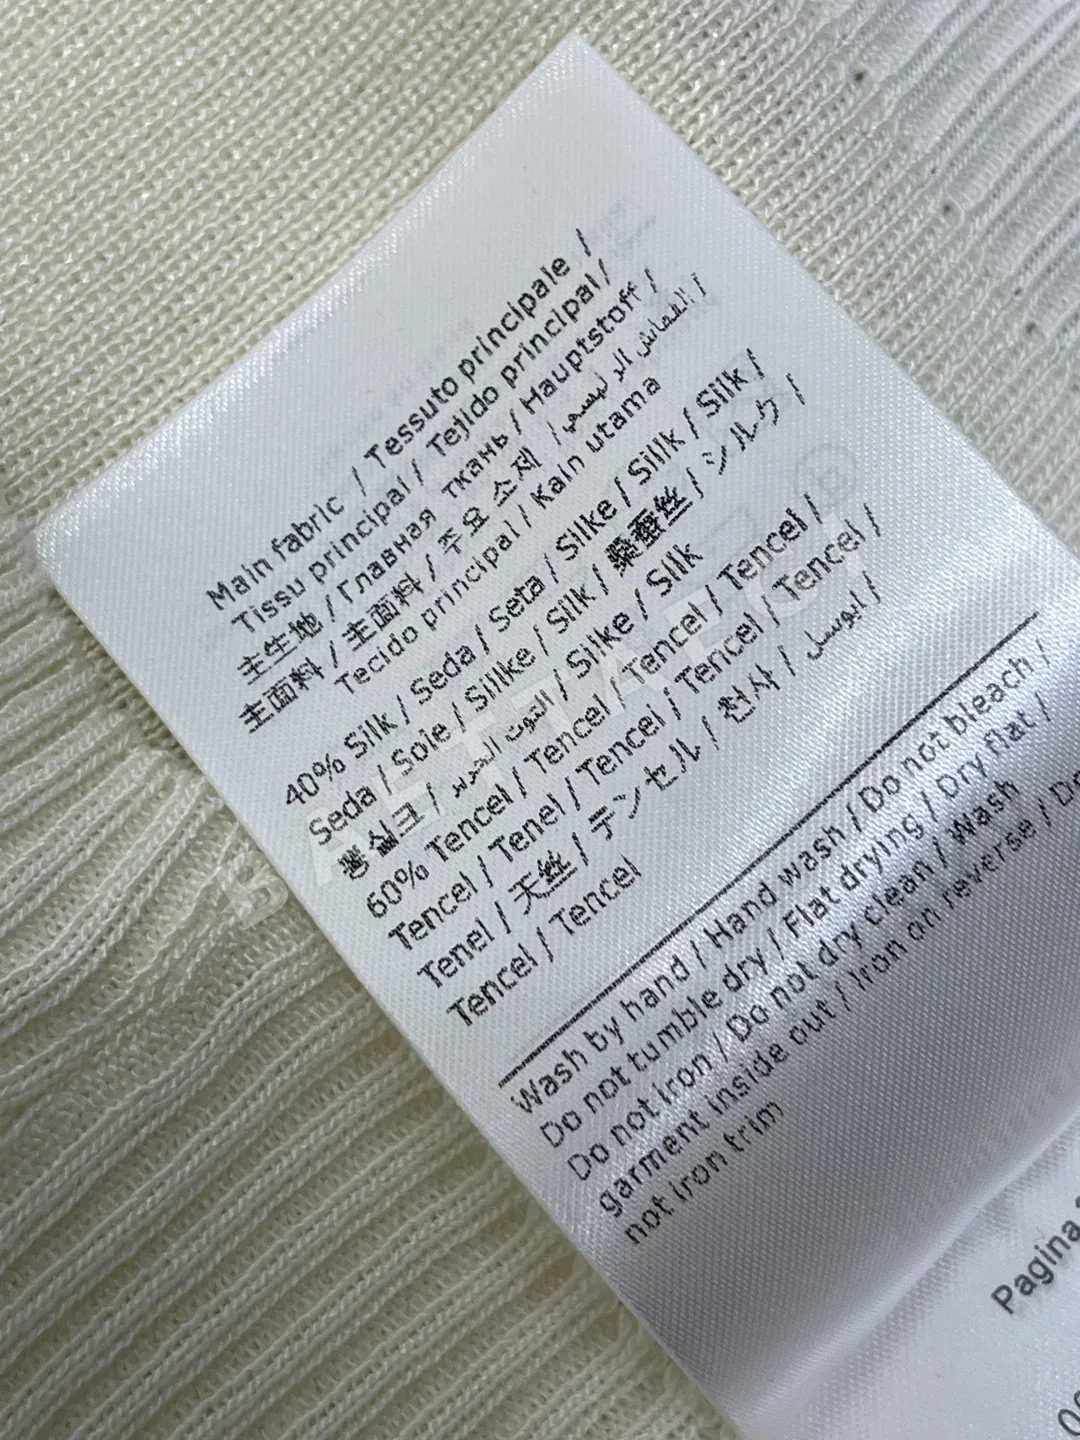 Main fabric / Tessuto principale /
Tissu principal / Tejido principal /
主生地 / Главная ткань / Hauptstoff /
主面料 / 主面料 / 주요 소재 / القماش الرئيسي /
Tecido principal / Kain utama
40% Silk / Seda / Seta / Silke / Sillk / Silk /
Seda / Soie / Sillke / Silk / 桑蚕丝 / シルク /
실크 / التوت / Silke / Silk
60% Tencel / Tencel / Tencel / Tencel /
Tencel / Tenel / Tencel / Tencel / Tencel /
Tenel / 天丝 / テンセル / 천사 /
Tencel / Tencel
Wash by hand / Hand wash / Do not bleach /
Do not tumble dry / Flat drying / Dry flat /
Do not iron / Do not dry clean / Wash
garment inside out / Iron on reverse / Do
not iron trim
Pagina